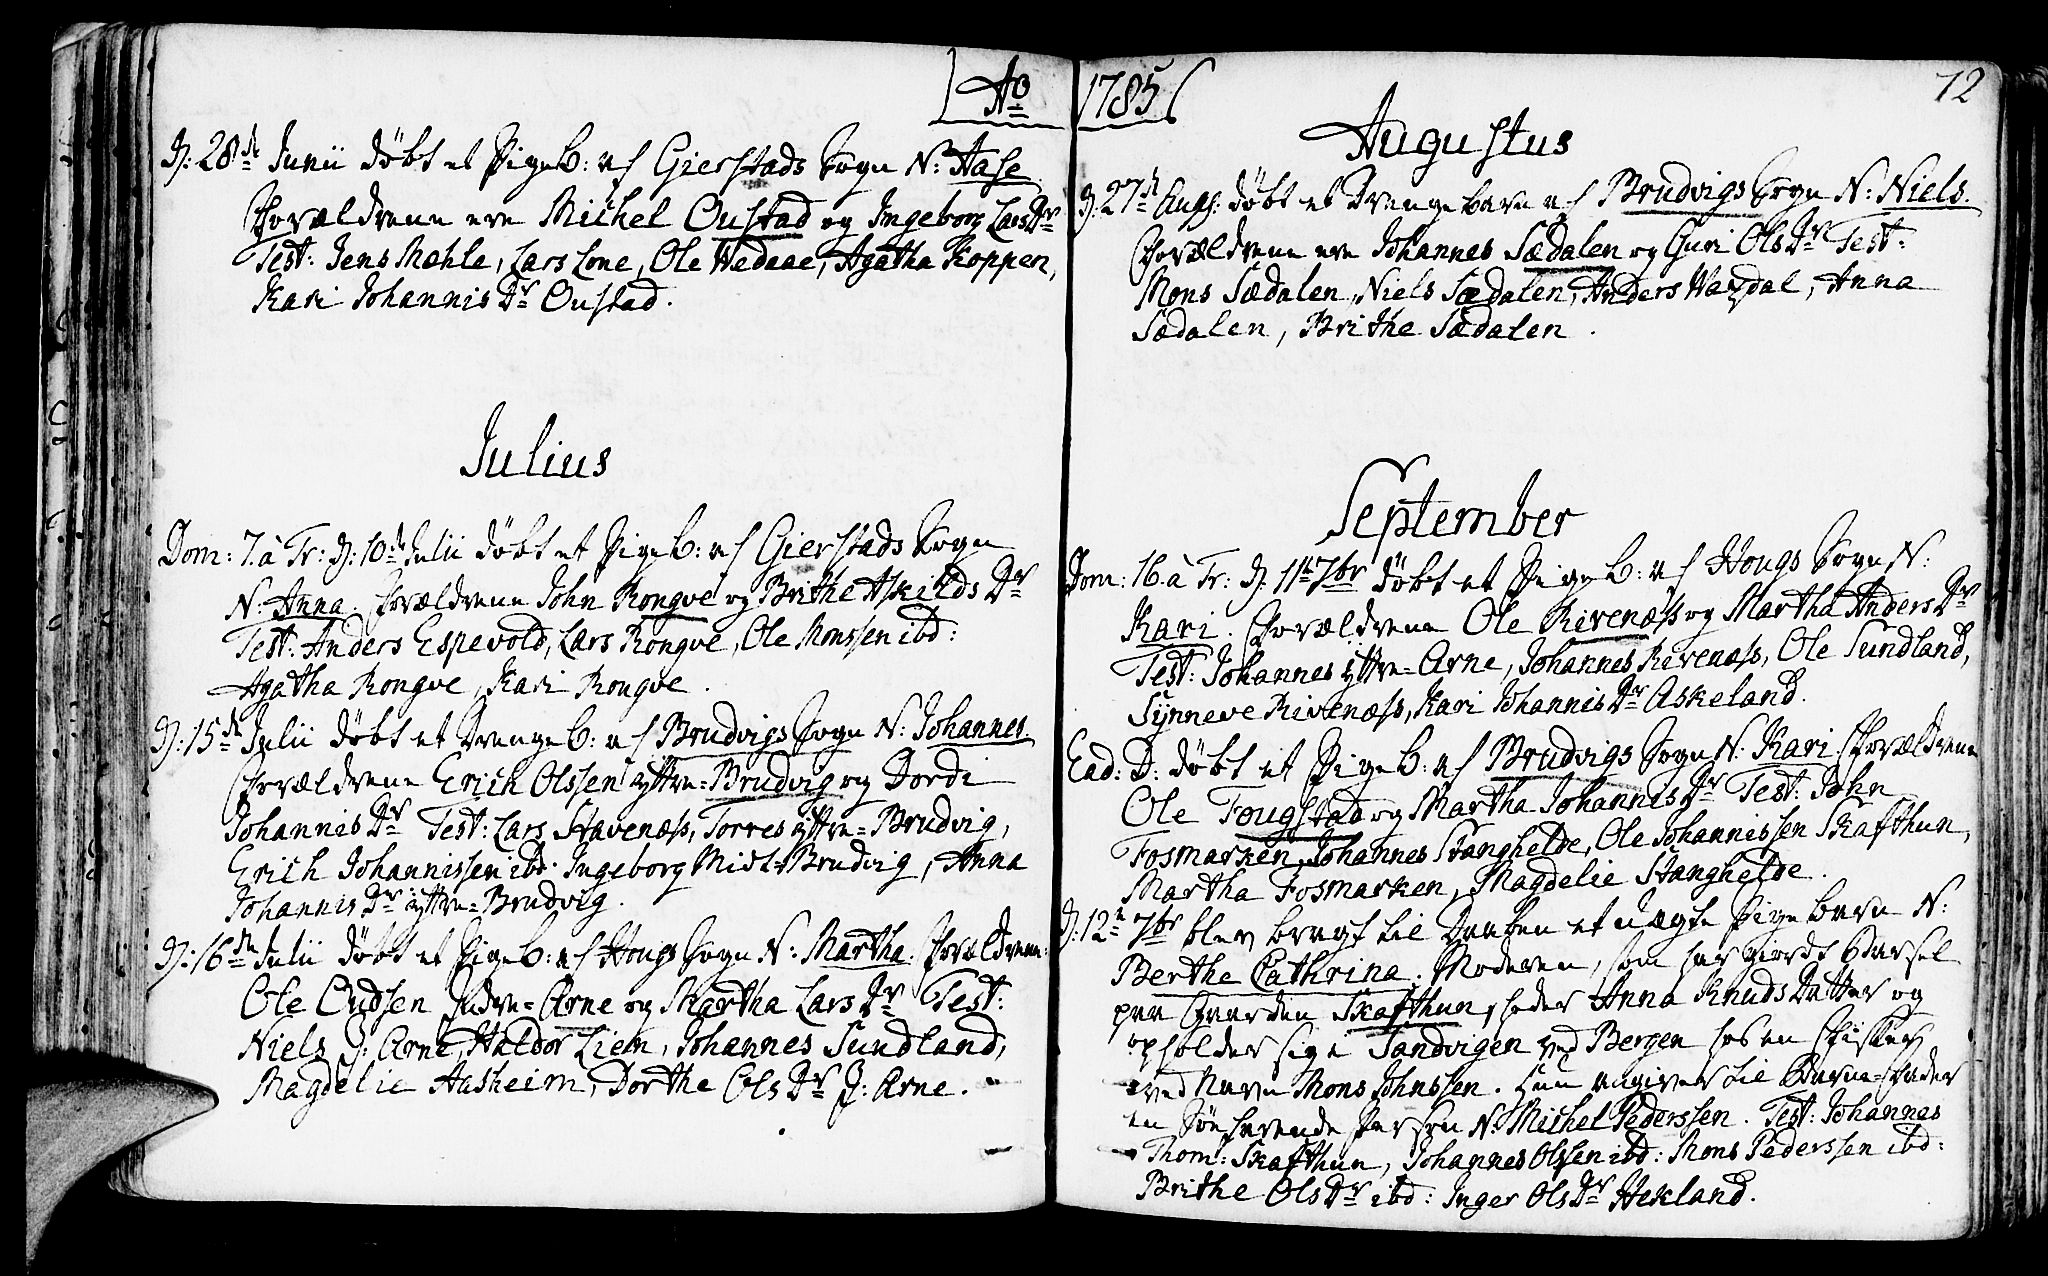 Ao 1785
D: 28de Junii döbt et Pigeb: af Gierstads Sogn N: Aase
Forældrene ere Michel Oustad og Ingeborg Lars Dr
Test: Jens Mæhle, Lars Lone, Ole Hedaae, Agatha Koppen,
Kari Johannis Dr Oustad.
Julius
Dom: 7. à Tr: d: 10de Julii döbt et Pigeb: af Gierstads Sogn
N: Anna. Forældrene John Rongve og Brithe Askilds Dr
Test: Anders Espevold, Lars Rongve, Ole Monssen ibd:
Agatha Rongve, Kari Rongve.
D: 15de Julii döbt et Drengeb: af Brudvigs Sogn N: Johannes.
Forældrene Erich Olssen yttre=Brudvig og Dordi
Johannis Dr Test: Lars Stavenæss, Torres yttre=Brudvig,
Erich Johannissen ibd: Ingeborg Midt=Brudvig, Anna
Johannis Dr yttre=Brudvig.
D: 16de Julii döbt et Pigeb: af Hougs Sogn N: Martha. Forældrene:
Ole Endsen Indre=Arne og Martha Lars Dr Test:
Niels J: Arne, Haldor Lien, Johannes Sundland,
Magdelie Aasheim, Dorthe Ols Dr J: Arne.
72
Augustus
D: 27de Aug: döbt et Drengebarn af Brudvigs Sogn N: Niels.
Forældrene ere Johannes Sædalen og Guri Ols Dr Test:
Mons Sædalen, Niels Sædalen, Anders Hazdal, Anna
Sædalen, Brithe Sædalen.
September
Dom: 16. à Tr: d: 11te 7br döbt et Pigeb: af Hougs Sogn N:
Kari. Forældrene Ole Rivenæss og Martha Anders Dr
Test: Johannes yttre=Arne, Johannes Rivenæss, Ole Sundland,
Synneve Rivenæss, Kari Johannis Dr Askeland.
Ead: D: döbt et Pigeb: af Brudvigs Sogn N: Kari. Forældrene
Ole Fougstad og Martha Johannis Dr Test: John
Fosmarken, Johannes Stanghelde, Ole Johannissen Skafthun,
Martha Fosmarken, Magdelie Stanghelde.
D: 12te 7br blev bragt til Daaben et uægte Pigebarn N:
Berthe Cathrina. Moderen, som har giordt Barsel
paa Gaarden Skafthun, heder Anna Knuds Datter og
opholder sig i Sandvigen ved Bergen hos en Fisker
ved Navn Mons Johnssen. Hun angiver til Barne=Fader
en Söefarende Person N: Michel Pederssen. Test: Johannes
Thom: Skafthun, Johannes Olssen ibd: Mons Pederssen ibd:
Brithe Ols Dr ibd: Inger Ols Dr Hekland.